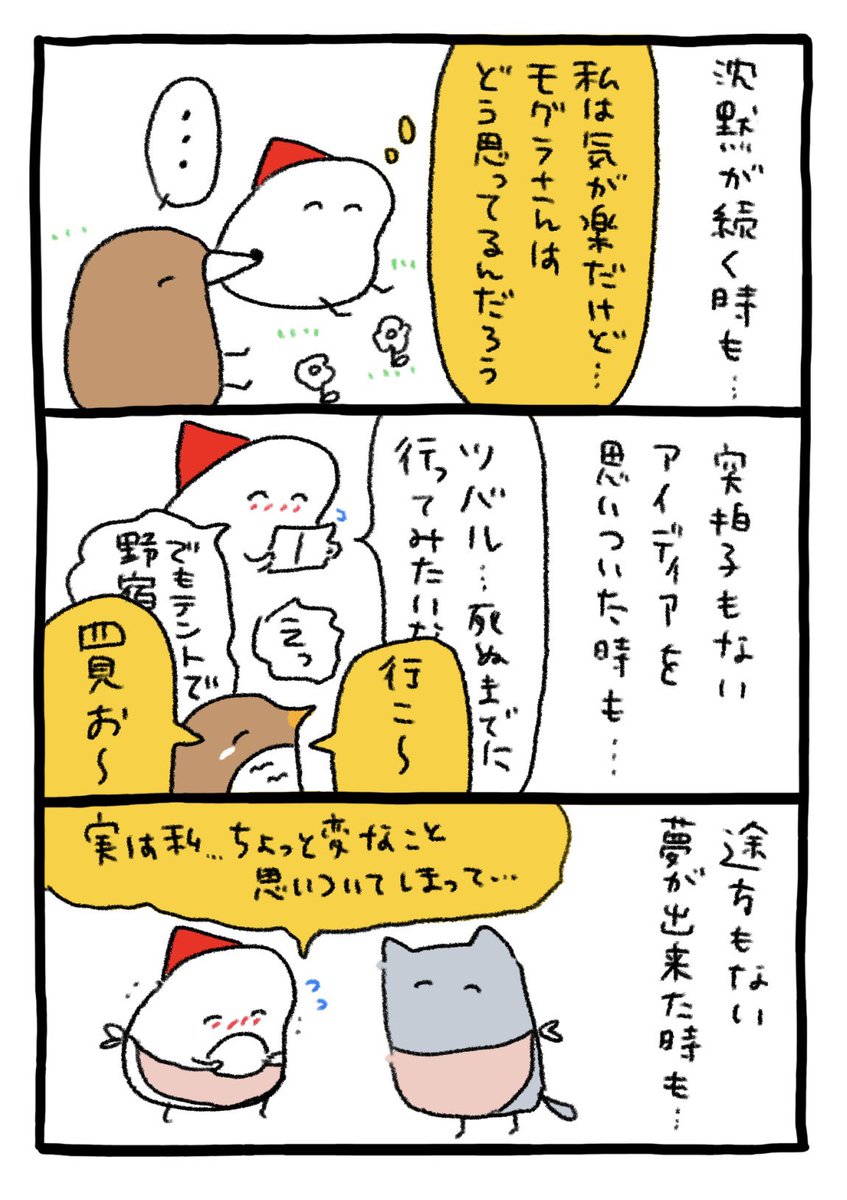 沈黙が続く時も…
私は気が楽だけど…
モグラさんは
どう思ってるんだろう
…
突拍子もない
アイディアを
思いついた時も…
ツバル…死ぬまでに
行ってみたいな
えっ
行こ〜
でもテントで
野宿
四見お〜
途方もない
夢が出来た時も…
実は私…ちょっと変なこと
思いついてしまって…